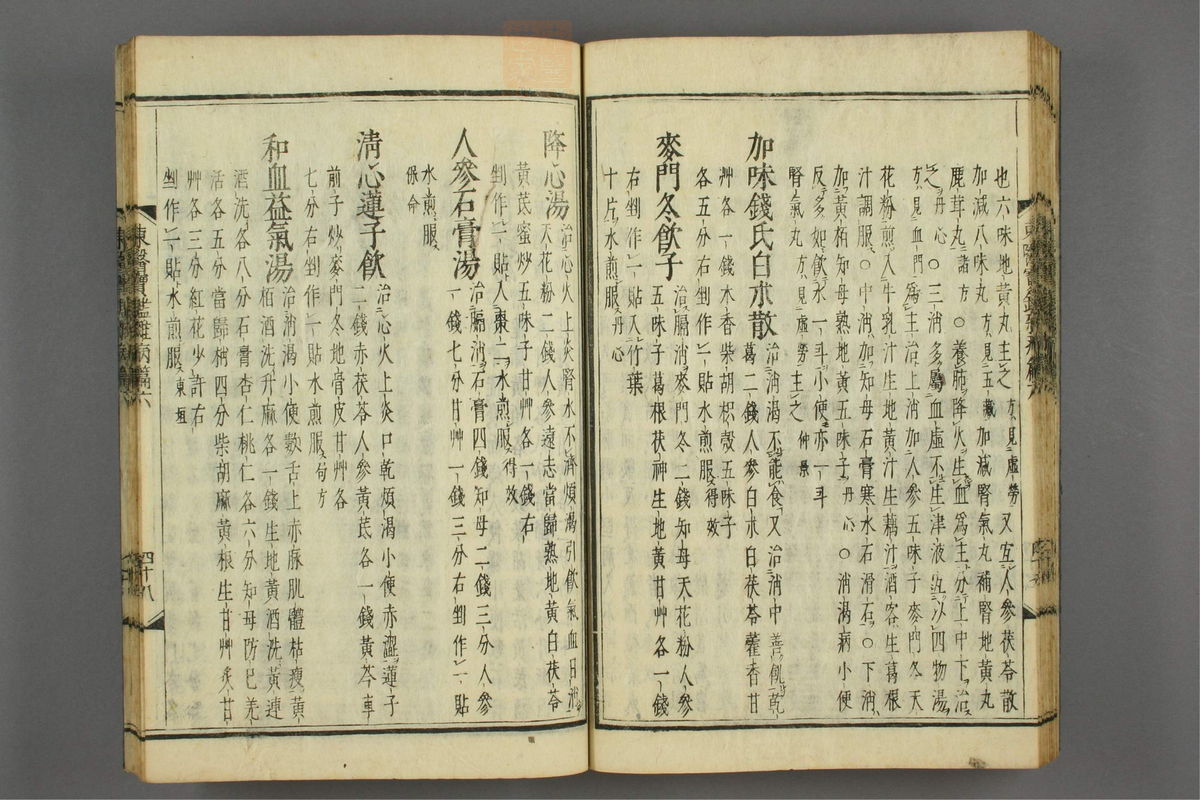 也六味地黃丸主之方見虛勞又宜人參茯苓散
加減八味丸方見五臟加減腎氣丸補腎地黃丸
鹿茸丸諸方○養肺降火生血爲主分上中下治
之丹心○三消多屬血虛不生津液宜以四物湯
方見血門爲主治上消加人參五味子麥門冬天
花粉煎入牛乳汁生地黃汁生藕汁酒客生葛根
汁調服中消加知母石膏寒水石滑石○下消
加黃栢知母熟地黃五味子丹心○消渴病小便
反多如飮水一斗小便亦一斗
腎氣丸方見虛勞主之仲景
加味錢氏白朮散治消渴不能食又治消中善飢乾
葛二錢人參白朮白茯苓藿香甘
艸各一錢木香柴胡枳殼五味子
各五分右剉作一貼水煎服得效
麥門冬飮子治膈消麥門冬二錢知母天花粉人參
五味子葛根茯神生地黃甘艸各一錢
右剉作一貼入竹葉
十片水煎服丹心
降心湯治心火上炎腎水不濟煩渴引飮氣血日消
天花粉二錢人參遠志當歸熟地黃白茯苓
黃芪蜜炒五味子甘艸各一錢右
剉作一貼入棗二水煎服得效
人參石膏湯治膈消石膏四錢知母二錢三分人參
一錢七分甘艸一錢三分右剉作一貼
水煎服
保命
淸心蓮子飮治心火上炎口乾煩渴小便赤澁蓮子
二錢赤茯苓人參黃芪各一錢黃芩車
前子炒麥門冬地骨皮甘艸各
七分右剉作一貼水煎服局方
和血益氣湯治消渴小便數舌上赤脉肌體枯瘦黃
栢酒洗升麻各一錢生地黃酒洗黃連
酒洗各八分石膏杏仁桃仁各六分知母防己羌
活各五分當歸梢四分柴胡麻黃根生甘艸炙甘
艸各三分紅花少許右
剉作一貼水煎服東垣
東醫寶鑑雜病篇六
四十八